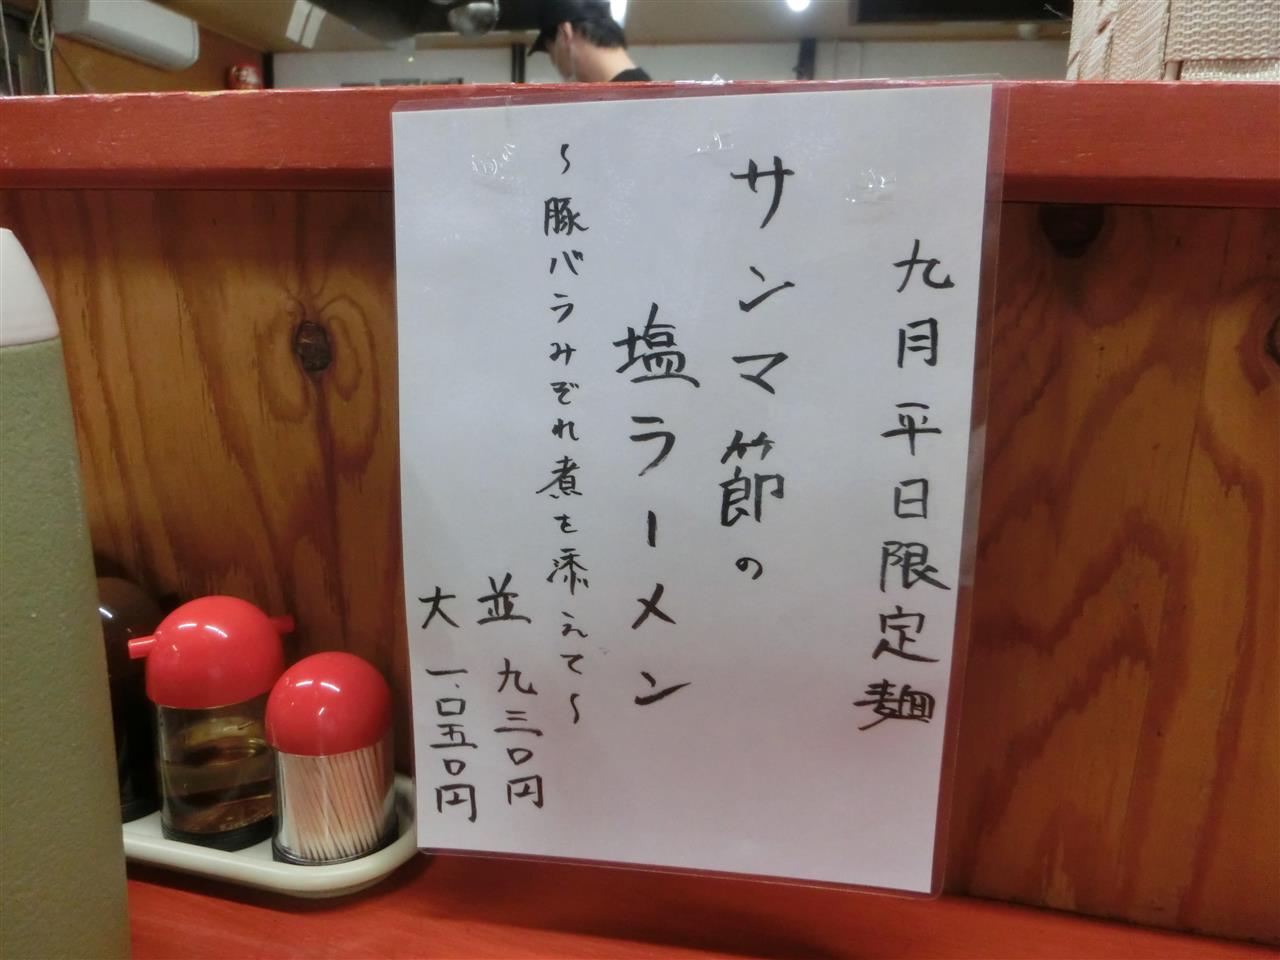 九月平日限定麺
サンマ節の
塩ラーメン
～豚バラみぞれ煮を添えて～
並 九三〇円
大 一、〇五〇円